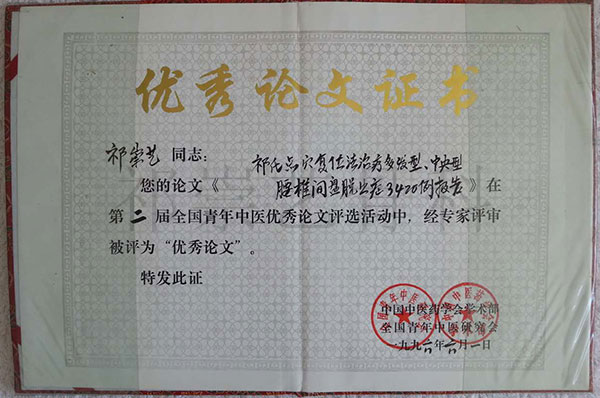 优秀论文证书
祁崇艺 同志：
祁氏点穴复位法治疗多发型、中央型
您的论文《腰椎间盘脱出症3420例报告》在
第二届全国青年中医优秀论文评选活动中，经专家评审
被评为“优秀论文”。
特发此证
中国中医药学会学术部
全国青年中医研究会